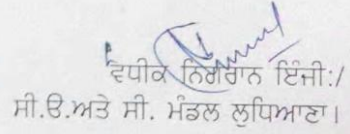 ਵਧੀਕ ਨਿਗਰਾਨ ਇੰਜੀ:/
ਸੀ.ਓ.ਅਤੇ ਸੀ. ਮੰਡਲ ਲੁਧਿਆਣਾ।